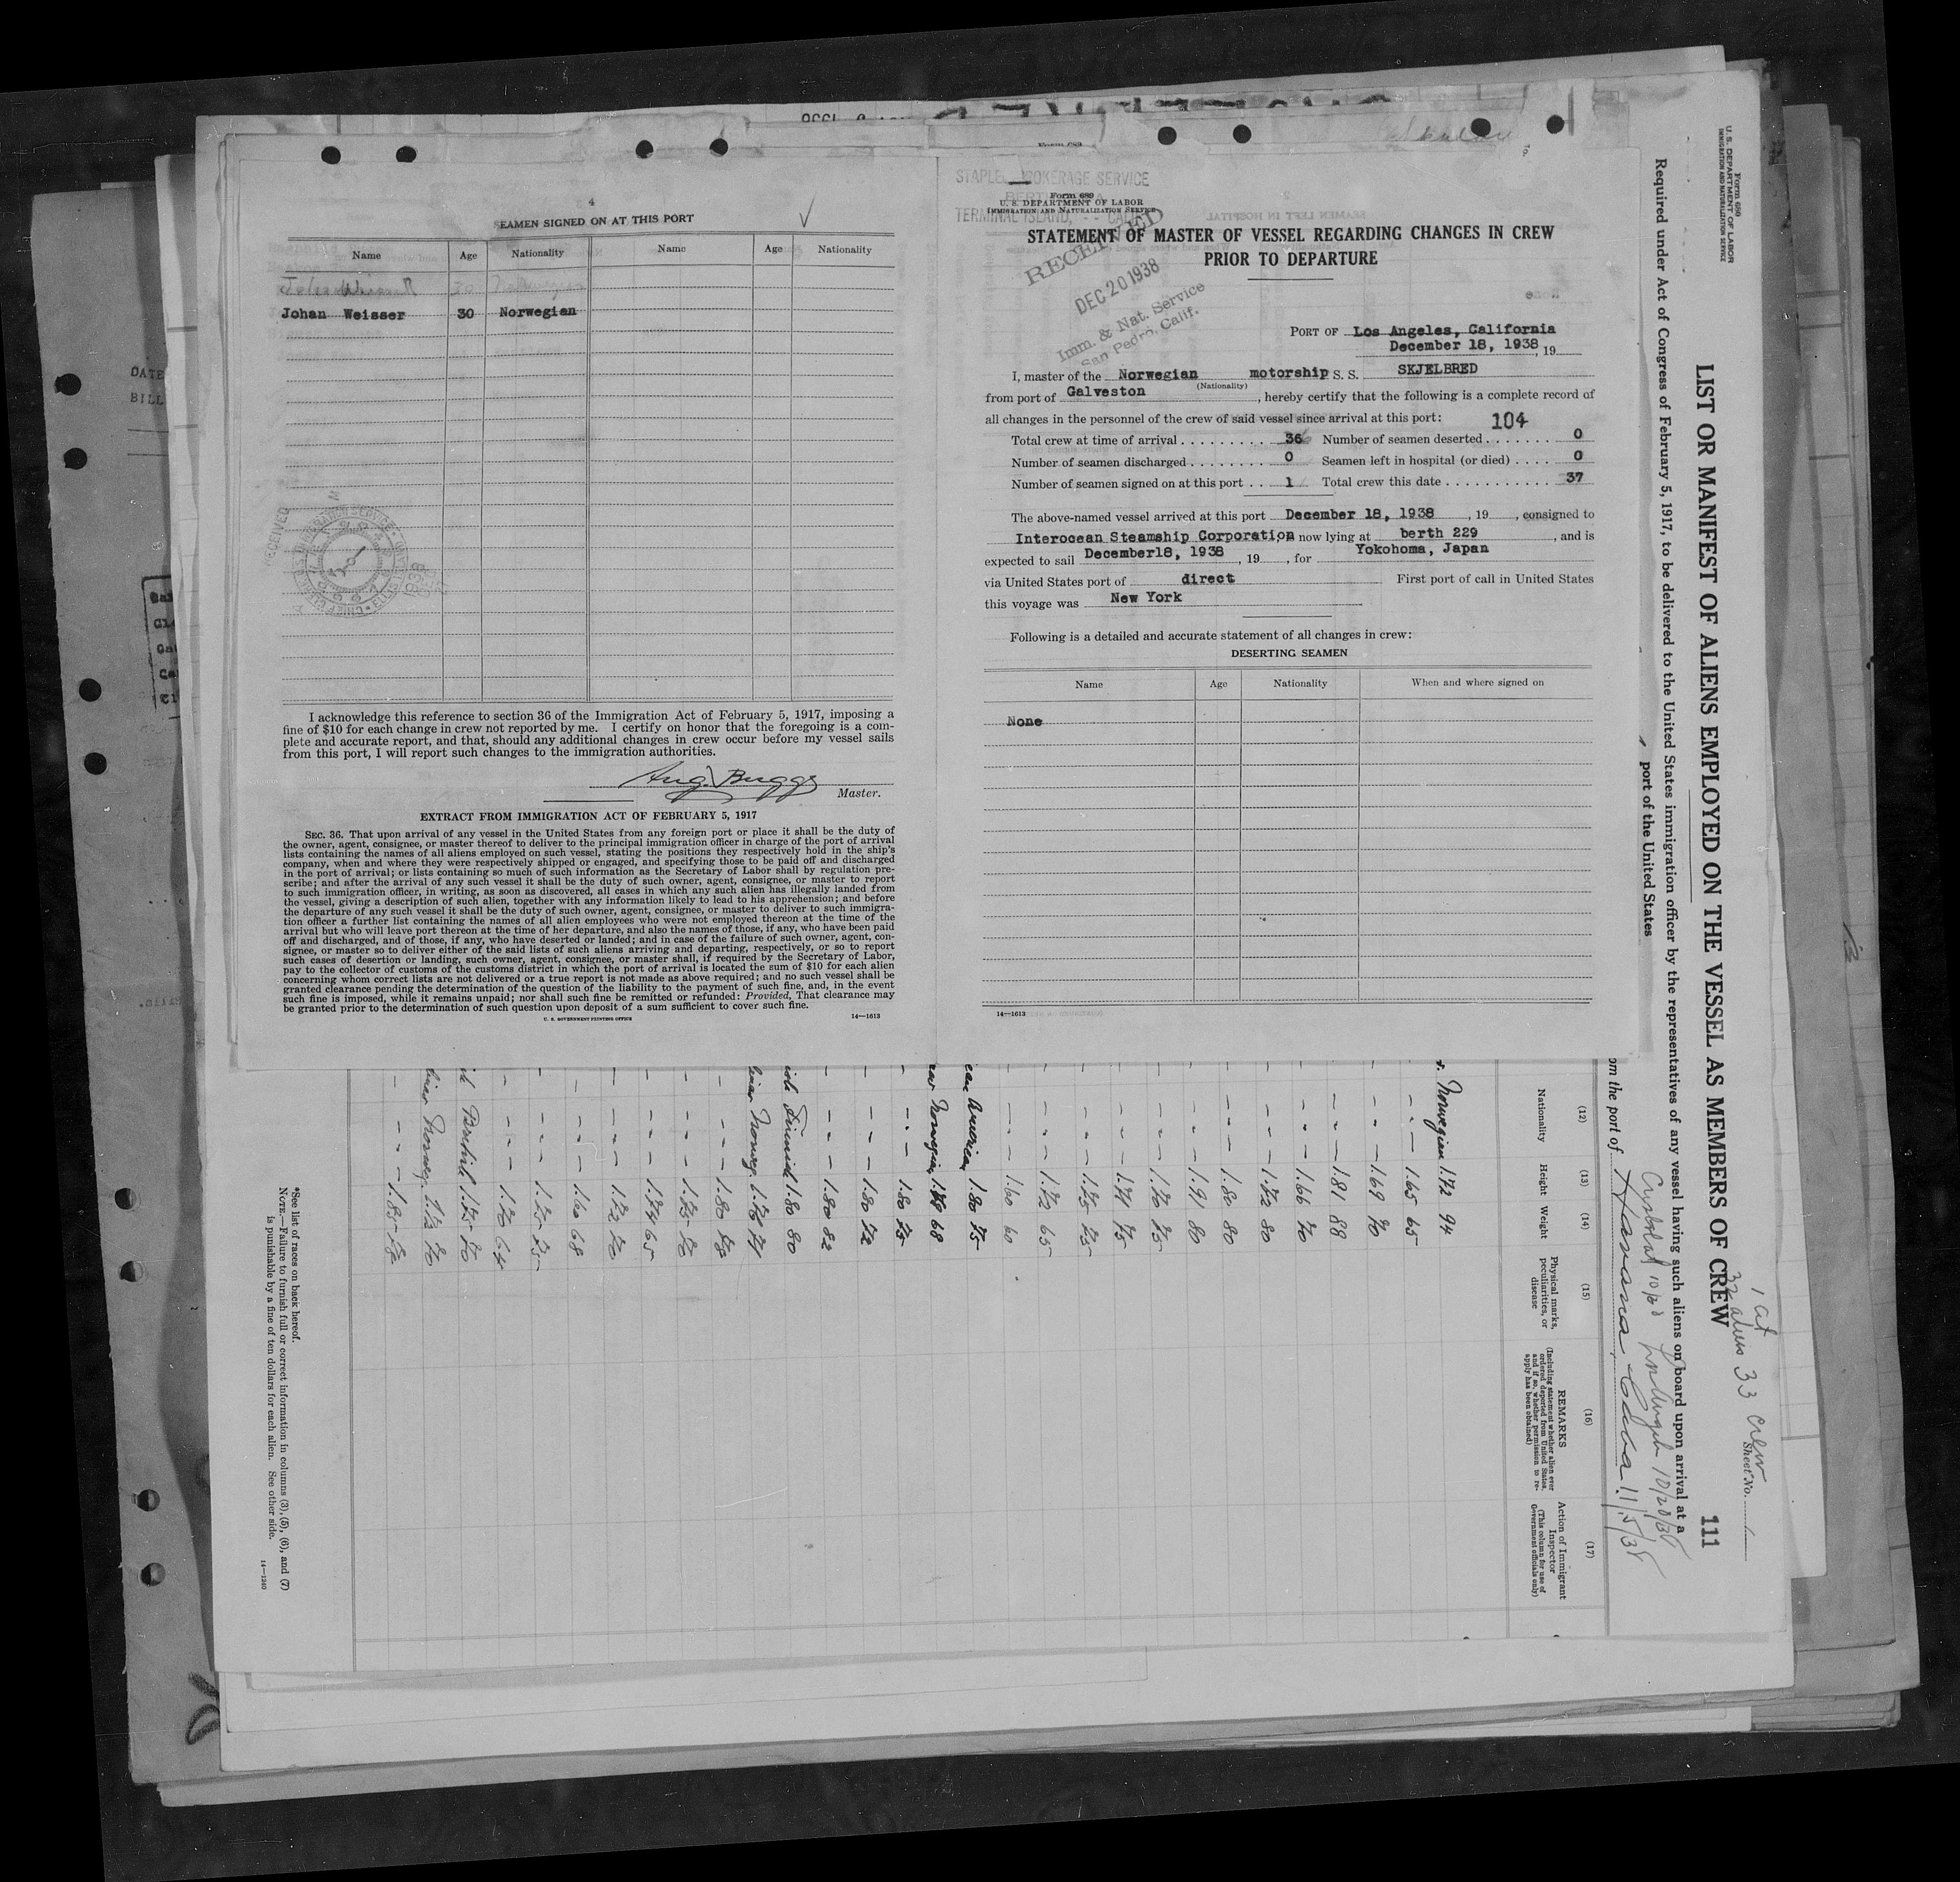 4
SEAMEN SIGNED ON AT THIS PORT
Name Age Nationality Name Age Nationality
Johan Weisser 30 Norwegian
I acknowledge this reference to section 36 of the Immigration Act of February 5, 1917, imposing a
fine of $10 for each change in crew not reported by me. I certify on honor that the foregoing is a com-
plete and accurate report, and that, should any additional changes in crew occur before my vessel sails
from this port, I will report such changes to the immigration authorities.
Master.
EXTRACT FROM IMMIGRATION ACT OF FEBRUARY 5, 1917
SEC. 36. That upon arrival of any vessel in the United States from any foreign port or place it shall be the duty of
the owner, agent, consignee, or master thereof to deliver to the principal immigration officer in charge of the port of arrival
lists containing the names of all aliens employed on such vessel, stating the positions they respectively hold in the ship's
company, when and where they were respectively shipped or engaged, and specifying those to be paid off and discharged
in the port of arrival; or lists containing so much of such information as the Secretary of Labor shall by regulation pre-
scribe; and after the arrival of any such vessel it shall be the duty of such owner, agent, consignee, or master to report
to such immigration officer, in writing, as soon as discovered, all cases in which any such alien has illegally landed from
the vessel, giving a description of such alien, together with any information likely to lead to his apprehension; and before
the departure of any such vessel it shall be the duty of such owner, agent, consignee, or master to deliver to such immigra-
tion officer a further list containing the names of all alien employees who were not employed thereon at the time of the
arrival but who will leave port thereon at the time of her departure, and also the names of those, if any, who have been paid
off and discharged, and of those, if any, who have deserted or landed; and in case of the failure of such owner, agent, con-
signee, or master so to deliver either of the said lists of such aliens arriving and departing, respectively, or so to report
such cases of desertion or landing, such owner, agent, consignee, or master shall, if required by the Secretary of Labor,
pay to the collector of customs of the customs district in which the port of arrival is located the sum of $10 for each alien
concerning whom correct lists are not delivered or a true report is not made as above required; and no such vessel shall be
granted clearance pending the determination of the question of the liability to the payment of such fine, and, in the event
such fine is imposed, while it remains unpaid; nor shall such fine be remitted or refunded: Provided, That clearance may
be granted prior to the determination of such question upon deposit of a sum sufficient to cover such fine.
U. S. GOVERNMENT PRINTING OFFICE 14—1613
BROKERAGE SERVICE
TERMINAL ISLAND,
Form 689
U. S. DEPARTMENT OF LABOR
IMMIGRATION AND NATURALIZATION SERVICE
RECEIVED
DEC 20 1938
Imm. & Nat. Service
San Pedro, Calif.
STATEMENT OF MASTER OF VESSEL REGARDING CHANGES IN CREW
PRIOR TO DEPARTURE
PORT OF Los Angeles, California
December 18, 1938, 19
I, master of the Norwegian motorship S. S. SKJELBRED
(Nationality)
from port of Galveston, hereby certify that the following is a complete record of
all changes in the personnel of the crew of said vessel since arrival at this port: 104
Total crew at time of arrival 36 Number of seamen deserted 0
Number of seamen discharged 0 Seamen left in hospital (or died) 0
Number of seamen signed on at this port 1 Total crew this date 37
The above-named vessel arrived at this port December 18, 1938, 19, consigned to
Interocean Steamship Corporation now lying at berth 229, and is
expected to sail December18, 1938, 19, for Yokohoma, Japan
via United States port of direct First port of call in United States
this voyage was New York
Following is a detailed and accurate statement of all changes in crew:
DESERTING SEAMEN
Name Age Nationality When and where signed on
None
14—1613
Form 680
U. S. DEPARTMENT OF LABOR
IMMIGRATION AND NATURALIZATION SERVICE
1 Cit
32 aliens 33 crew
Sheet No.
LIST OR MANIFEST OF ALIENS EMPLOYED ON THE VESSEL AS MEMBERS OF CREW 111
Required under Act of Congress of February 5, 1917, to be delivered to the United States immigration officer by the representatives of any vessel having such aliens on board upon arrival at a
port of the United States
om the port of Havana Cuba 11/5/38
(12) (13) (14) (15) (16) (17)
Nationality Height Weight
Physical marks, peculiarities, or disease
REMARKS
(Including statement whether alien ever ordered deported from United States, and if so, whether permission to re-apply has been obtained)
Action of Immigrant Inspector
(This column for use of Government officials only)
Norwegian 1.72 94
1.65 65
1.69 70
1.81 88
1.66 70
1.72 80
1.80 80
1.91 80
1.70 75
1.71 75
1.75 75
1.72 65
1.60 60
America 1.80 75
Norwegian 68
1.80 75
1.80 72
1.80 82
1.80 80
Norweg. 1.76 74
1.80 78
1.75 70
1.74 65
1.72 70
1.60 68
1.75 75
1.70 64
British 1.75 70
Norweg. 1.72 70
1.85 78
*See list of races on back hereof.
NOTE.—Failure to furnish full or correct information in columns (3), (5), (6), and (7)
is punishable by a fine of ten dollars for each alien. See other side.
14—1240